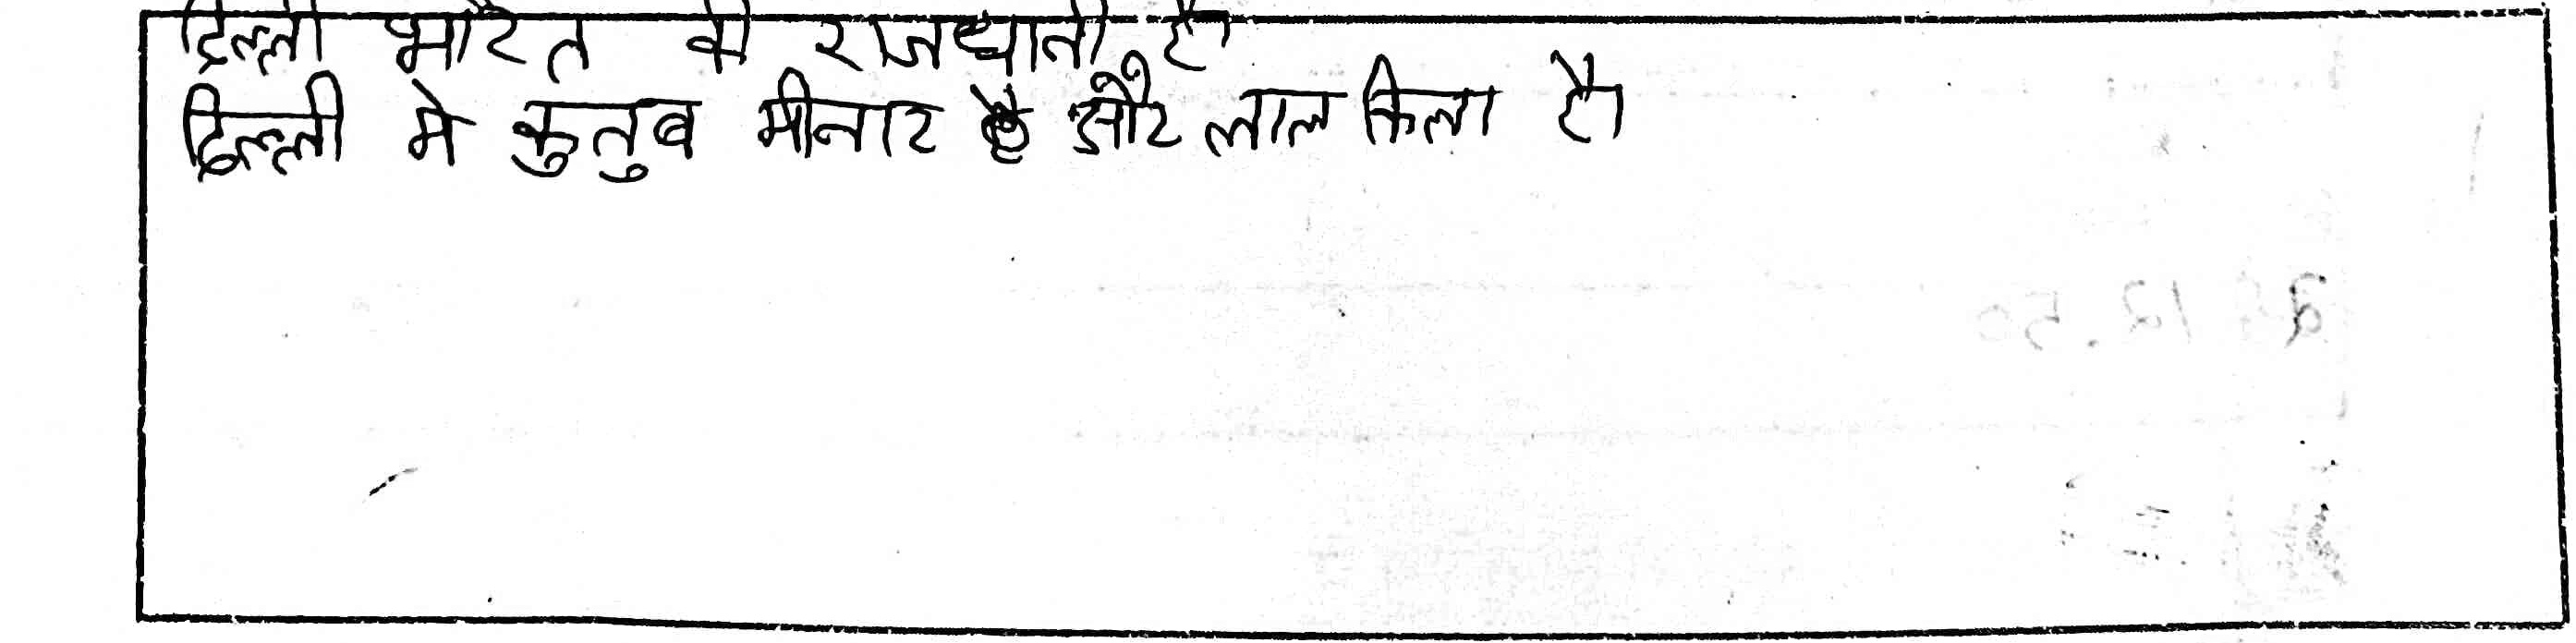 दिल्ली भारत की राजधानी है।
दिल्ली मे कुतुब मीनार है और लाल किला है।